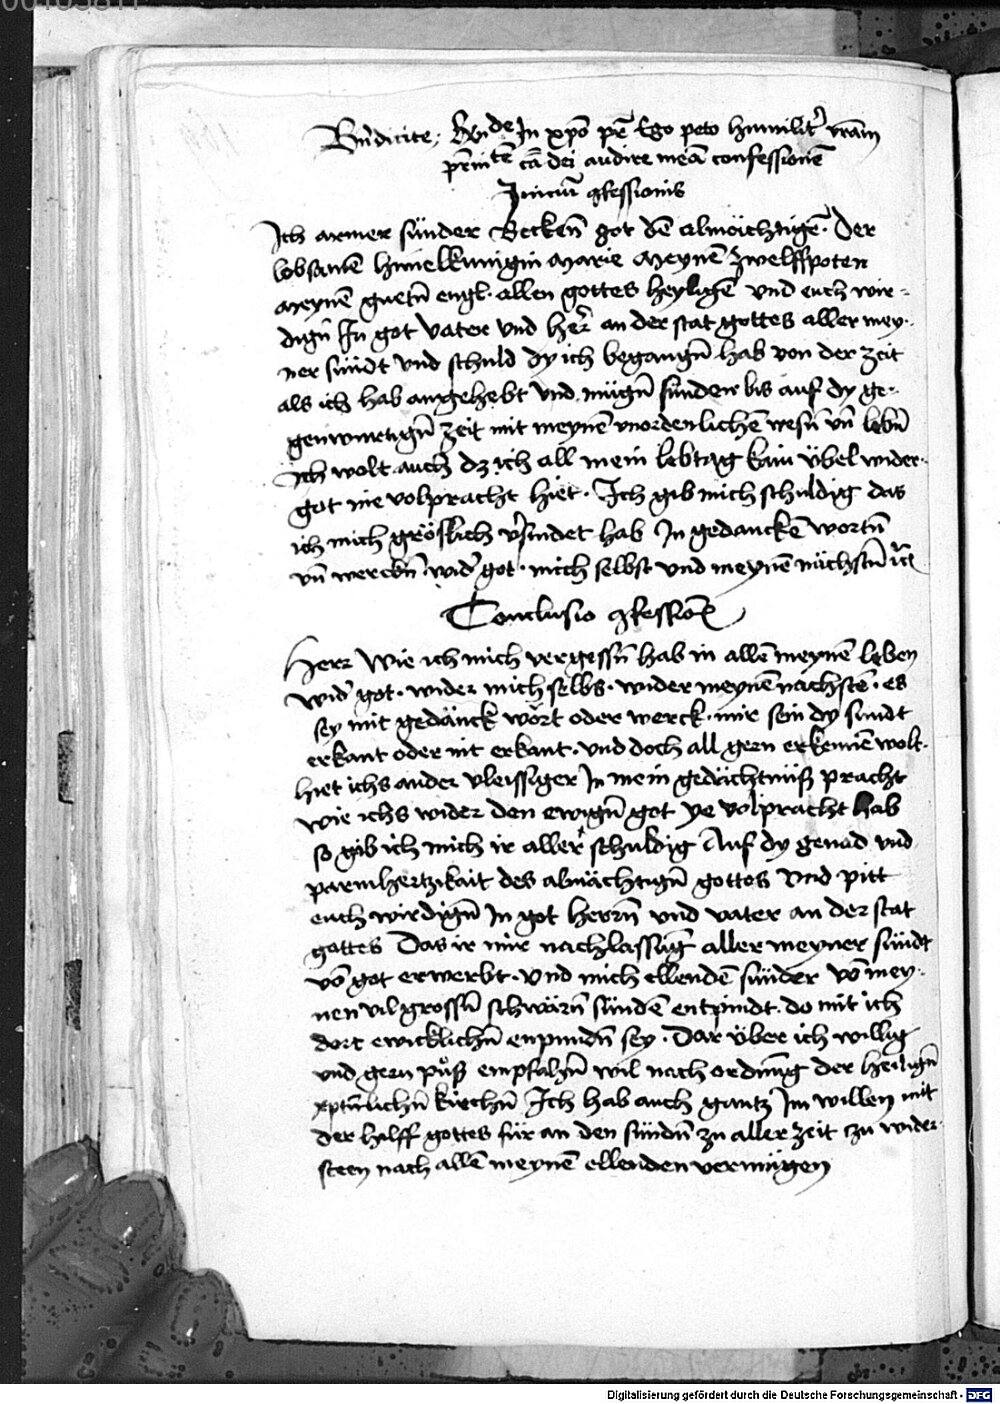 00103811
Bn̄dicite, Rn̄de In xp̄o pr̄ Ego peto humilit̉ vr̄am
pr̄nitētiā dei audire meā confessionē
Iniciū ꝯfessionis
Ich armer sünder Beckeñ got dē almöichtigē. Der
lobsamē himelkunigin Marie Meynē Zwelffpoten
Meynē guetn̄ engl. allen gottes heyligē vnd euch wir-
dign̄ In got vater vnd her̄ an der stat gottes aller mey-
ner sündt vnd schuld dy ich begangn̄ hab von der zeit
als ich hab angehebt vnd mügn̄ sünden bis auf dy ge-
genwurtign̄ zeit mit meynē vnordenlichē wesn̄ vn̄ lebn̄
ich wolt auch dz ich all mein lebtag kain übel wider
got nie volpracht hiet. Ich gib mich schuldig das
ich mich gröslich v̉sündet hab In gedanckē wortn̄
vn̄ werckn̄ wid̉ got. mich selbst vnd meynē nächstn̄
Conclusio ꝯfessiōis
Herr Wie ich mich vergessn̄ hab in allē meynē leben
wid̉ got. wider mich selbs. wider meynē nachstē. es
sey mit gedänck wört oder werck. mir sein dy sündt
erkant oder nit erkant. vnd doch all gern erkennē wolt.
hiet ichs ander vleissiger In mein gedächtnüß pracht
wie ichs wider den ewign̄ got ye volpracht hab
so gib ich mich ir aller schuldig Auf dy genad vnd
parmhertzikait des almächtign̄ gottes vnd pitt
euch wirdign̄ In got herrn̄ vnd vater an der stat
gottes Das ir mir nachlassung aller meyner sündt
vō got erwerbt. vnd mich ellendē sünder vō mey-
nen vil grossn̄ schwärn̄ sündē entpindt. do mit ich
dort ewicklichn̄ enpundn̄ sey. Dar über ich willig
vnd gern pu̇ß empfahn̄ wil nach ordnūg der heilign̄
xp̄nlichn̄ kirchn̄ Ich hab auch gantz Im willen mit
der hilff gottes für an den sündn̄ zu aller zeit zu wider
steen nach allē meynē ellenden vermügen
Digitalisierung gefördert durch die Deutsche Forschungsgemeinschaft - DFG